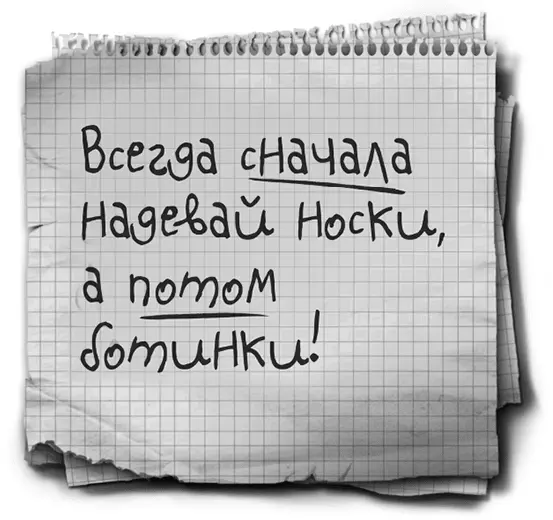 Всегда сначала
надевай носки,
а потом
ботинки!